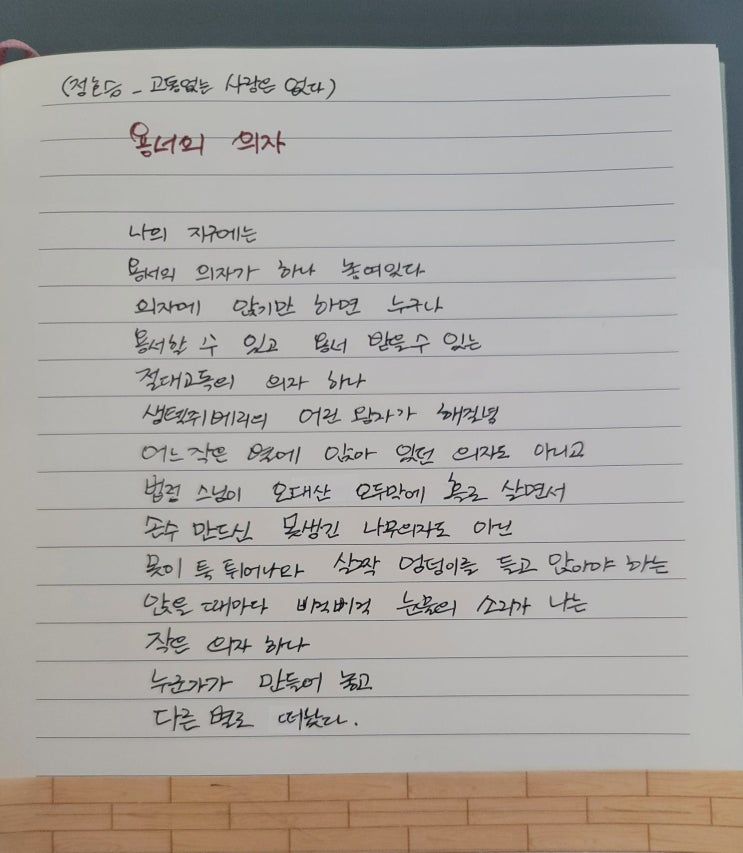 (정호승 - 고통없는 사랑은 없다)
용서의 의자
나의 지구에는
용서의 의자가 하나 놓여있다
의자에 앉기만 하면 누구나
용서할 수 있고 용서 받을수 있는
절대고독의 의자 하나
생텍쥐베리의 어린 왕자가 해질녘
어느 작은 별에 앉아 있던 의자도 아니고
법정 스님이 오대산 오두막에 홀로 살면서
손수 만드신 못생긴 나무의자도 아닌
못이 툭 튀어나와 살짝 엉덩이를 들고 앉아야 하는
앉을 때마다 삐걱삐걱 눈물의 소리가 나는
작은 의자 하나
누군가가 만들어 놓고
다른 별로 떠났다.